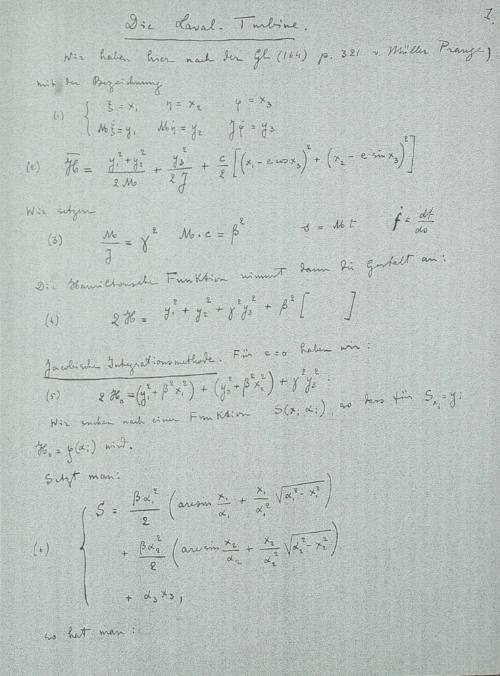 1.
Die Laval-Turbine.
Wir haben hier nach der Gl (164) p. 321 v. Müller Prange,
mit der Bezeichnung
(1) { ξ = x₁  η = x₂  φ = x₃
Mξ̇ = y₁  Mη̇ = y₂  Jφ̇ = y₃
(2) H̅ = (y₁² + y₂²)/2M + y₃²/2J + c/2 [(x₁ − e cos x₃)² + (x₂ − e sin x₃)²]
Wir setzen
(3) M/J = γ²  M·c = β²  s = Mt  ḟ = df/ds
Die Hamiltonsche Funktion nimmt dann die Gestalt an:
(4) 2H = y₁² + y₂² + γ²y₃² + β² [ ]
Jacobische Integrationsmethode. Für e=0 haben wir:
(5) 2H₀ = (y₁² + β²x₁²) + (y₂² + β²x₂²) + γ²y₃² :
Wir suchen nach einer Funktion S(xᵢ αᵢ), so dass für Sₓᵢ = yᵢ
H₀ = φ(αᵢ) wird.
Setzt man:
(6) { S = βα₁²/2 (arcsin x₁/α₁ + x₁/α₁² √(α₁² − x₁²))
+ βα₂²/2 (arcsin x₂/α₂ + x₂/α₂² √(α₂² − x₂²))
+ α₃x₃,
so hat man: